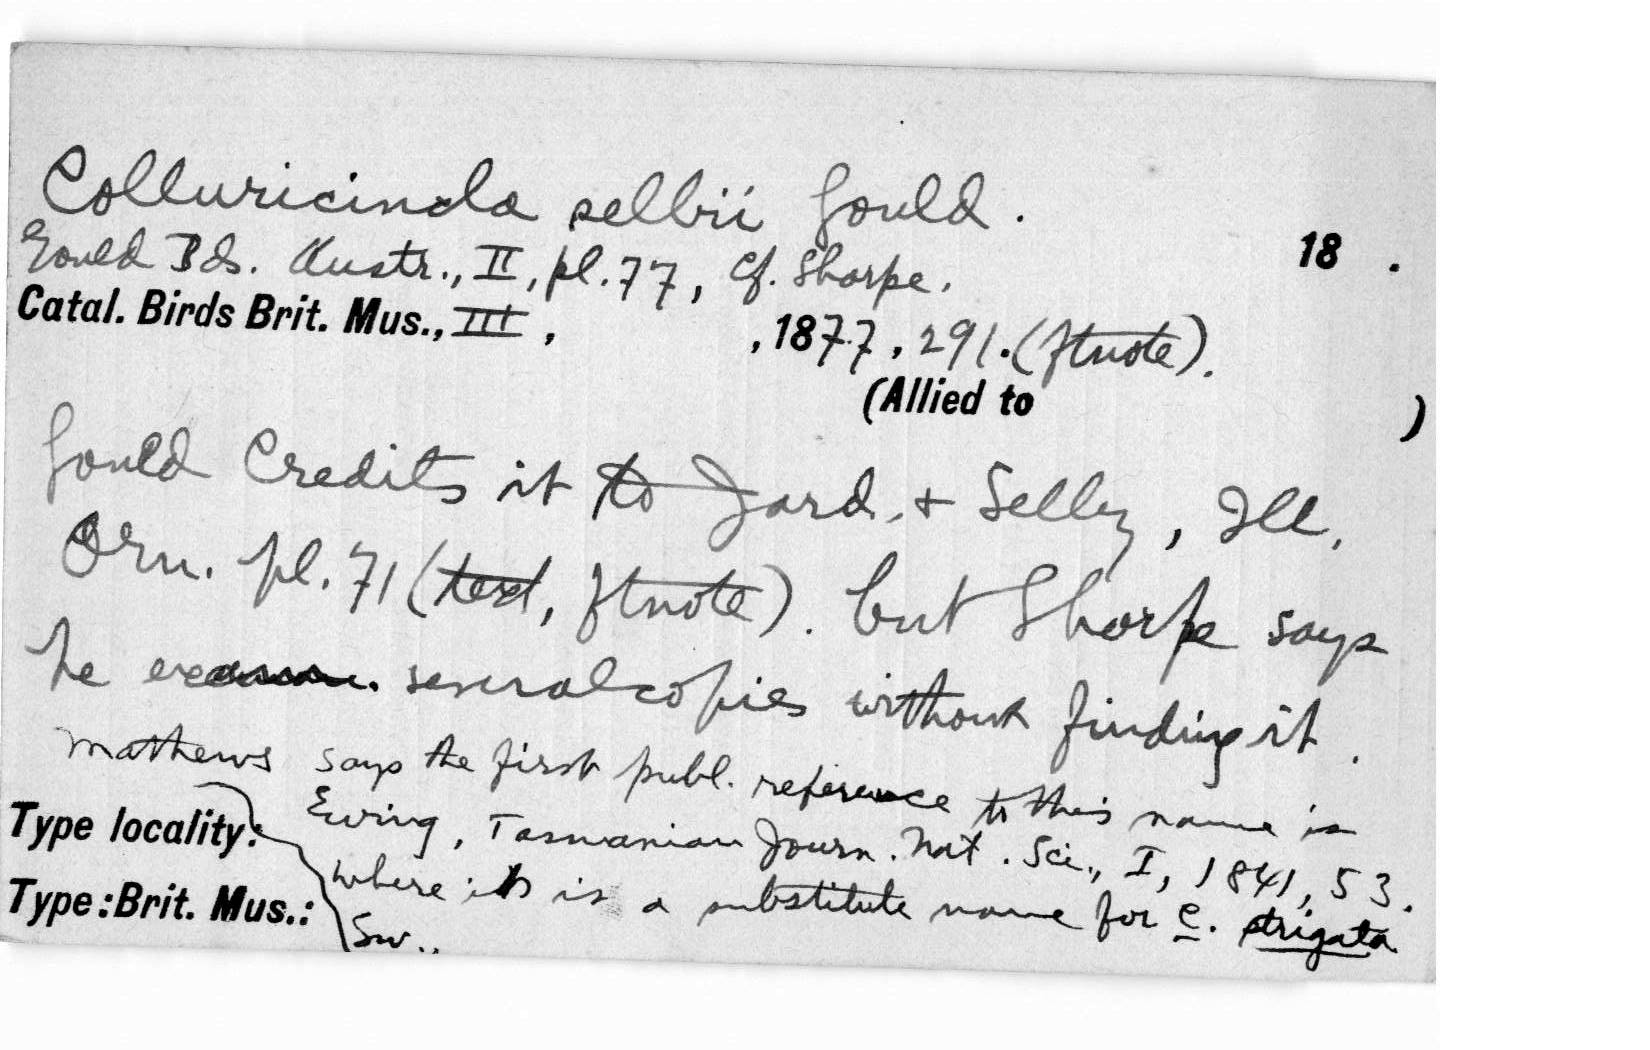 Colluricincla selbii Gould.
18 .
Gould Bds. Austr., II, pl. 77, Cf. Sharpe.
Catal. Birds Brit. Mus., III, , 1877, 291. (ftnote).
(Allied to )
Gould Credits it to Jard. + Selby, Ill.
Orn. pl. 71 (text, ftnote). but Sharpe says
he exam. several copies without finding it.
Mathews says the first publ. reference to this name is
Ewing, Tasmanian Journ. Nat. Sci., I, 1841, 53.
Type locality:
where it is a substitute name for C. strigata
Type: Brit. Mus.:
Sw..